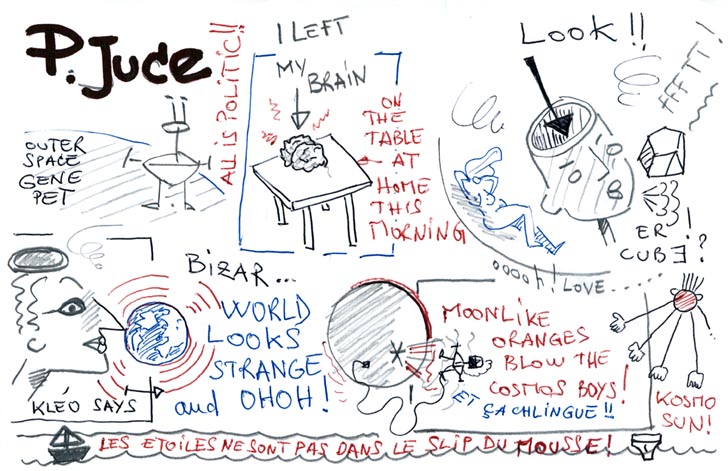 P. Jude
ALL IS POLITIC!!
I LEFT
MY BRAIN
ON
THE
TABLE
AT
HOME
THIS
MORNING
LOOK!!
FFFTT!
OUTER
SPACE
GENE
PET
ER!
CUBE?
OOOOH! LOVE.....
BIZAR...
WORLD
LOOKS
STRANGE
and OHOH!
KLÉO SAYS
MOONLIKE
ORANGES
BLOW THE
COSMOS BOYS!
ET ÇA CHLINGUE!!
KOSMO
SUN!
LES ETOILES NE SONT PAS DANS LE SLIP DU MOUSSE!